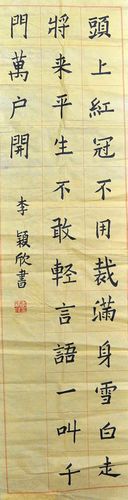 頭上紅冠不用裁滿身雪白走
將来平生不敢輕言語一叫千
門萬户開
李穎欣書